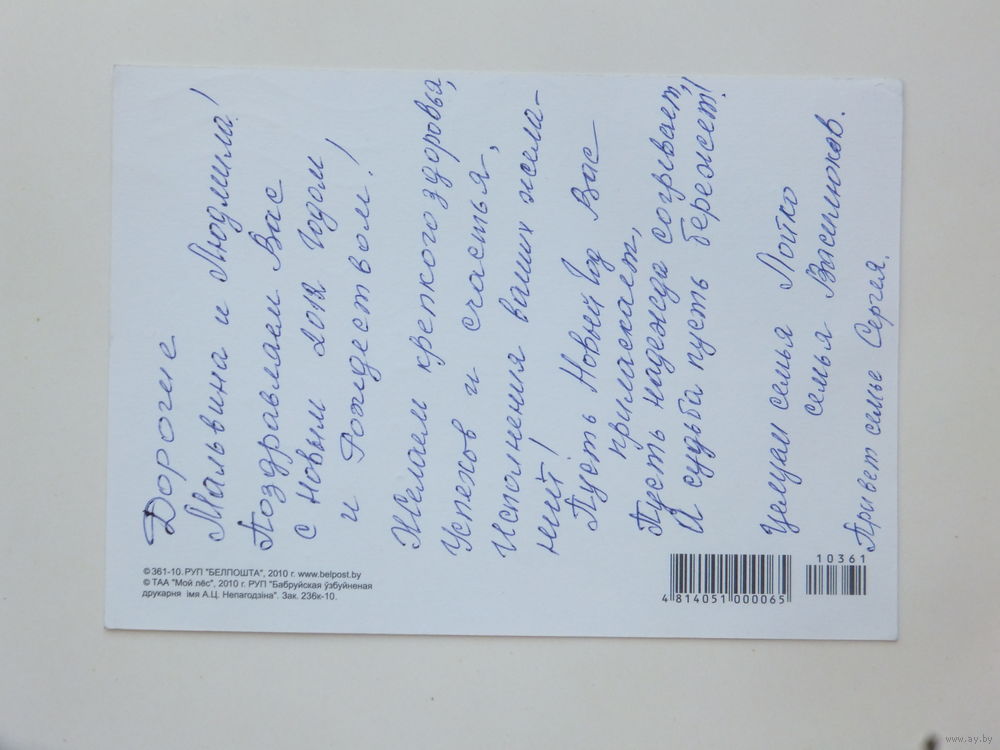 Дорогие
Мальвина и Людмила!
Поздравляем Вас
с Новым 2012 Годом
и Рождеством!
Желаем крепкого здоровья,
Успехов и счастья,
Исполнения ваших жела-
ний!
Пусть Новый Год Вас
приласкает,
Пусть надежда согревает,
И судьба пусть бережет!
Целуем семья Лойко
семья Васинюков.
Привет семье Сергея.
© 361-10. РУП "БЕЛПОШТА", 2010 г. www.belpost.by
© ТАА "Мой лёс", 2010 г. РУП "Бабруйская ўзбуйненая
друкарня імя А.Ц. Непагодзіна". Зак. 236к-10.
4 814051 000065
10361
www.ay.by